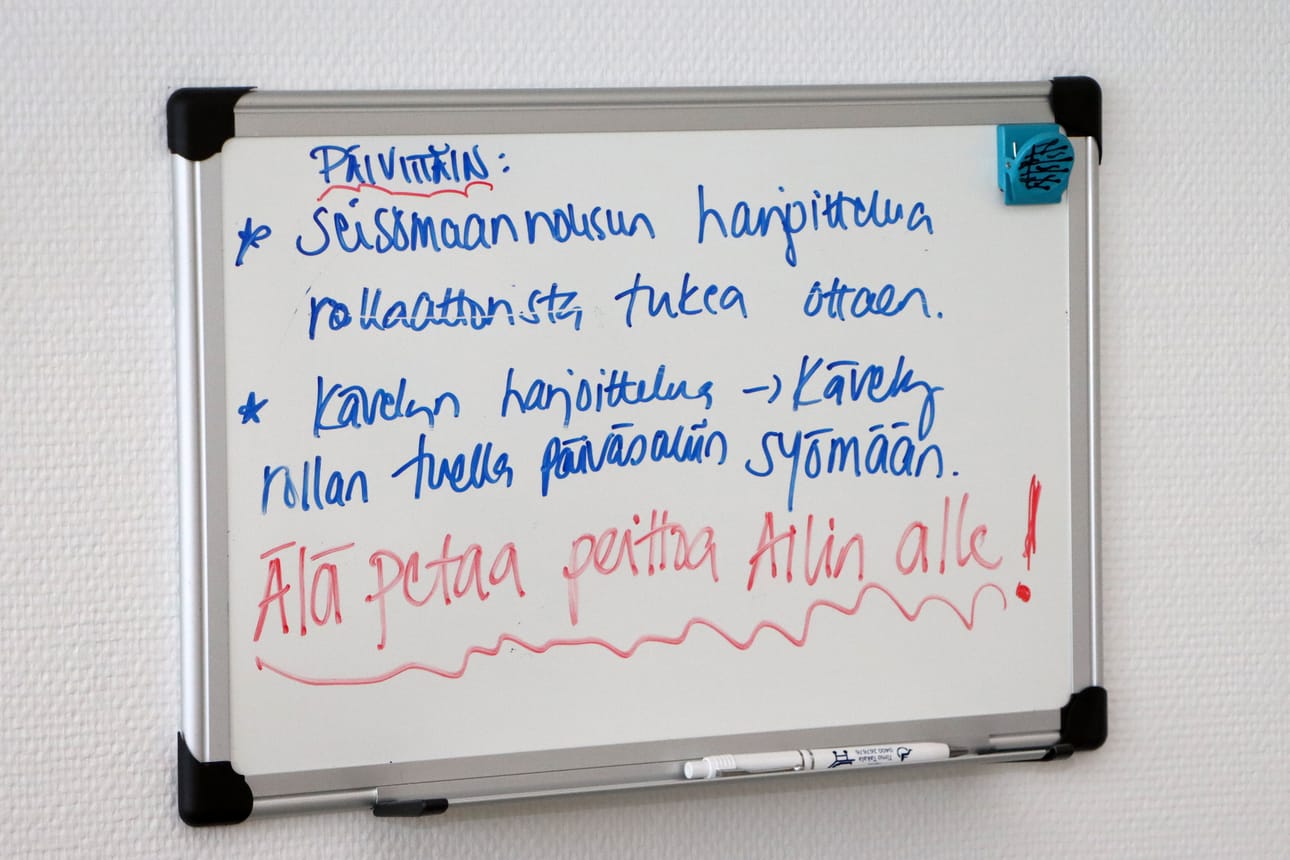 PÄIVITTÄIN:
* Seisomaannousun harjoittelua
rollaattorista tukea ottaen.
* Kävelyn harjoittelua → Kävely
rollan tuella päiväsaliin syömään.
Älä petaa peittoa Ailin alle!
Timo Takala